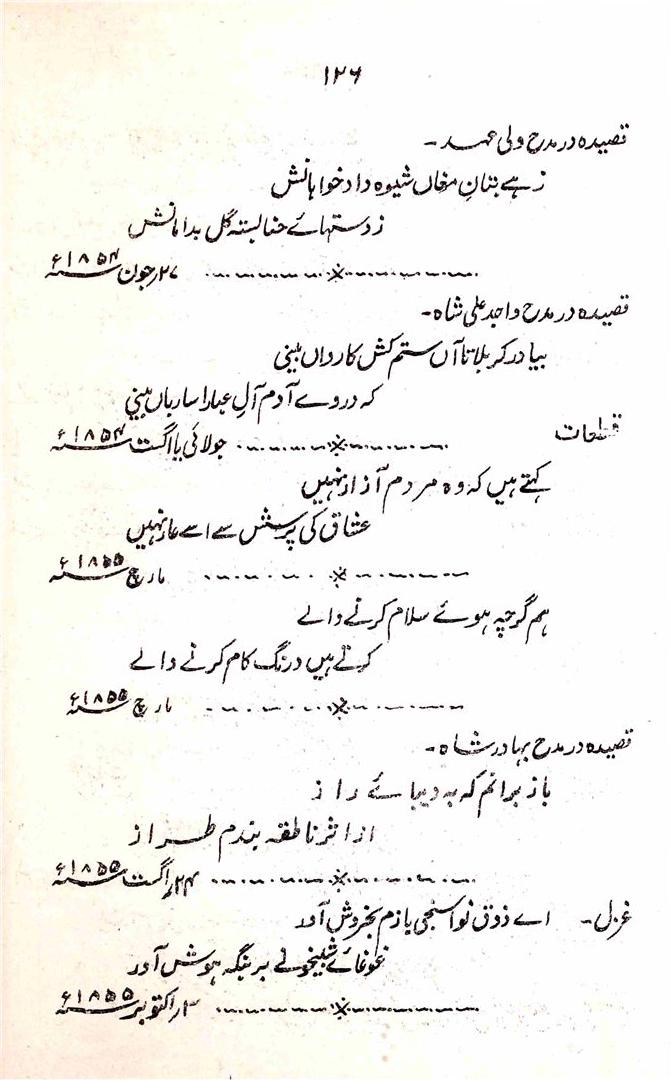 ۱۲۶
قصیدہ در مدح ولی عہد۔
زہے بتانِ مغاں شیوہ داد خواہانش
ز دستہائے حنا بستہ گل بدامانش
۲۷؍جون ۱۸۵۴ء
قصیدہ در مدح واجد علی شاہ۔
بیا در کربلا تا آں ستم کش کارواں بینی
کہ در وے آدم آلِ عبا را سارباں بینی
قطعات
جولائی یا اگست ۱۸۵۴ء
کہتے ہیں کہ وہ مردم آزار نہیں
عشاق کی پرسش سے اسے عار نہیں
مارچ ۱۸۵۵ء
ہم گرچہ ہوئے سلام کرنے والے
کرتے ہیں درنگ کام کرنے والے
مارچ ۱۸۵۵ء
قصیدہ در مدح بہادر شاہ۔
باز برانم کہ بہ دیبائے راز
از اثر ناطقہ بندم طراز
۲۴؍اگست ۱۸۵۵ء
غزل۔ اے ذوق نوا سنجی بازم بخروش آور
غوغائے شبیخونے بر بنگہ ہوش آور
۳؍اکتوبر ۱۸۵۵ء